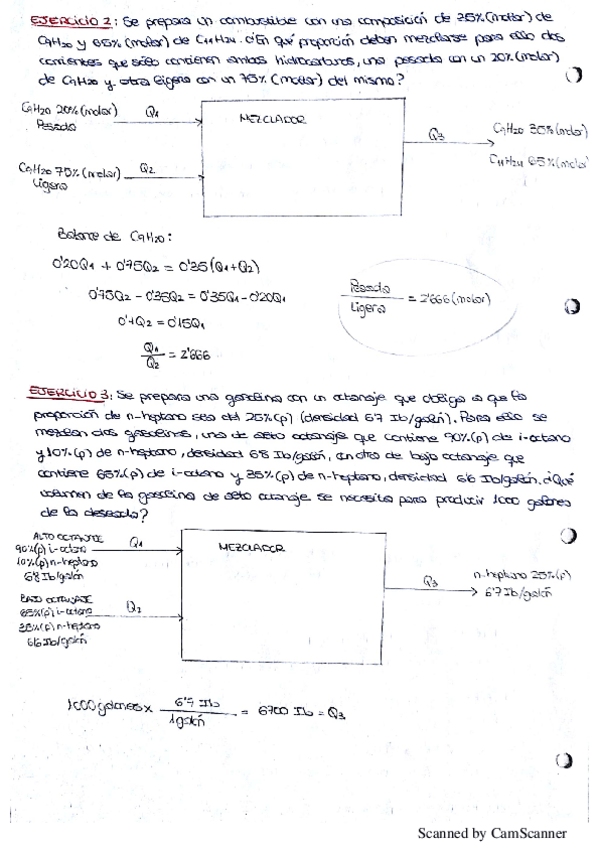 EJERCICIO 2: Se prepara un combustible con una composición de 35%(molar) de
C9H20 y 65%(molar) de C11H24. ¿En qué proporción deben mezclarse para ello dos
corrientes que sólo contienen ambos hidrocarburos, una pesada con un 20%(molar)
de C9H20 y otra ligera con un 75%(molar) del mismo?
C9H20 20%(molar)
Pesada
Q1
MEZCLADOR
Q3
C9H20 35%(molar)
C11H24 65%(molar)
C9H20 75%(molar)
Ligera
Q2
Balance de C9H20:
0'20Q1 + 0'75Q2 = 0'35(Q1+Q2)
0'75Q2 - 0'35Q2 = 0'35Q1 - 0'20Q1
0'4Q2 = 0'15Q1
Q1/Q2 = 2'666
Pesada/Ligera = 2'666(molar)
EJERCICIO 3: Se prepara una gasolina con un octanaje que obliga a que la
proporción de n-heptano sea del 25%(p) (densidad 6'7 lb/galón). Para ello se
mezclan dos gasolinas, una de alto octanaje que contiene 90%(p) de i-octano
y 10%(p) de n-heptano, densidad 6'8 lb/galón, con otra de bajo octanaje que
contiene 65%(p) de i-octano y 35%(p) de n-heptano, densidad 6'6 lb/galón. ¿Qué
volumen de la gasolina de alto octanaje se necesita para producir 1000 galones
de la deseada?
ALTO OCTANAJE
90%(p) i-octano
10%(p) n-heptano
6'8 lb/galón
Q1
MEZCLADOR
Q3
n-heptano 25%(p)
6'7 lb/galón
BAJO OCTANAJE
65%(p) i-octano
35%(p) n-heptano
6'6 lb/galón
Q2
1000 galones x 6'7 lb/1 galón = 6700 lb = Q3
Scanned by CamScanner